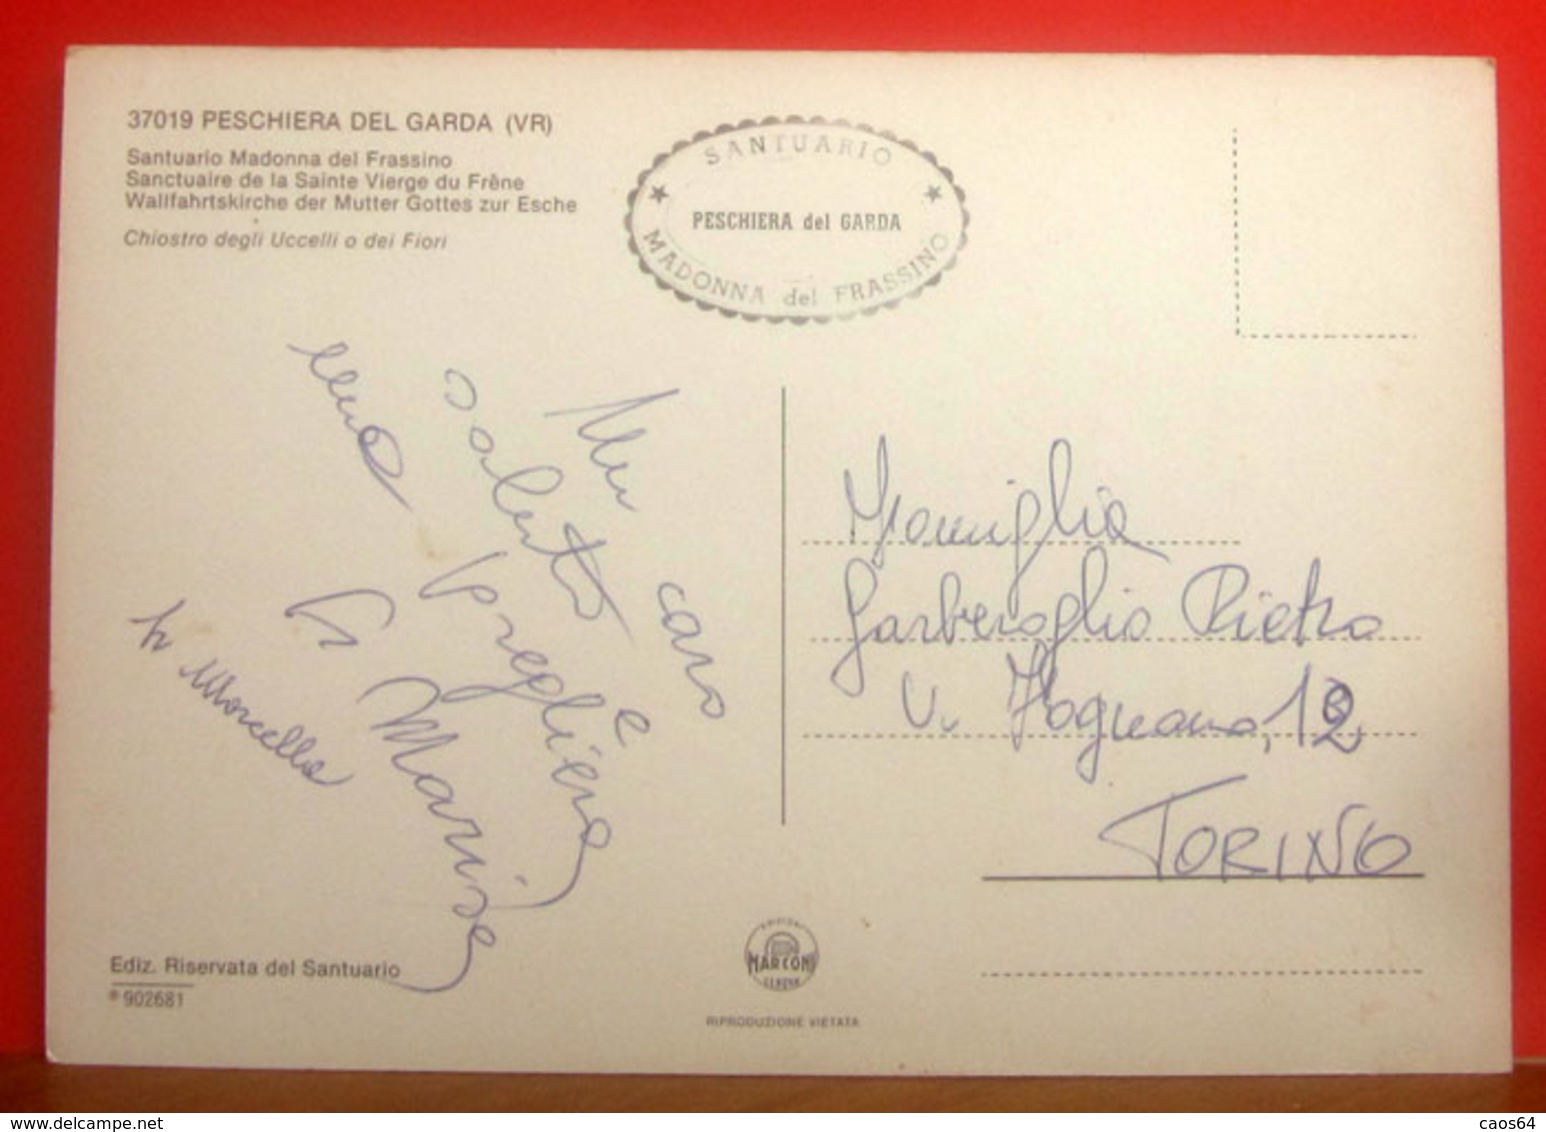 37019 PESCHIERA DEL GARDA (VR)
Santuario Madonna del Frassino
Sanctuaire de la Sainte Vierge du Frêne
Wallfahrtskirche der Mutter Gottes zur Esche
Chiostro degli Uccelli o dei Fiori
SANTUARIO
PESCHIERA del GARDA
MADONNA del FRASSINO
Un caro
saluto e
una preghiera
Sr Marisa
Sr Marcella
Famiglia
Garberoglio Pietro
V. Fognano, 12
TORINO
Ediz. Riservata del Santuario
902681
MARCONI
GENOVA
RIPRODUZIONE VIETATA
www.delcampe.net
caos64